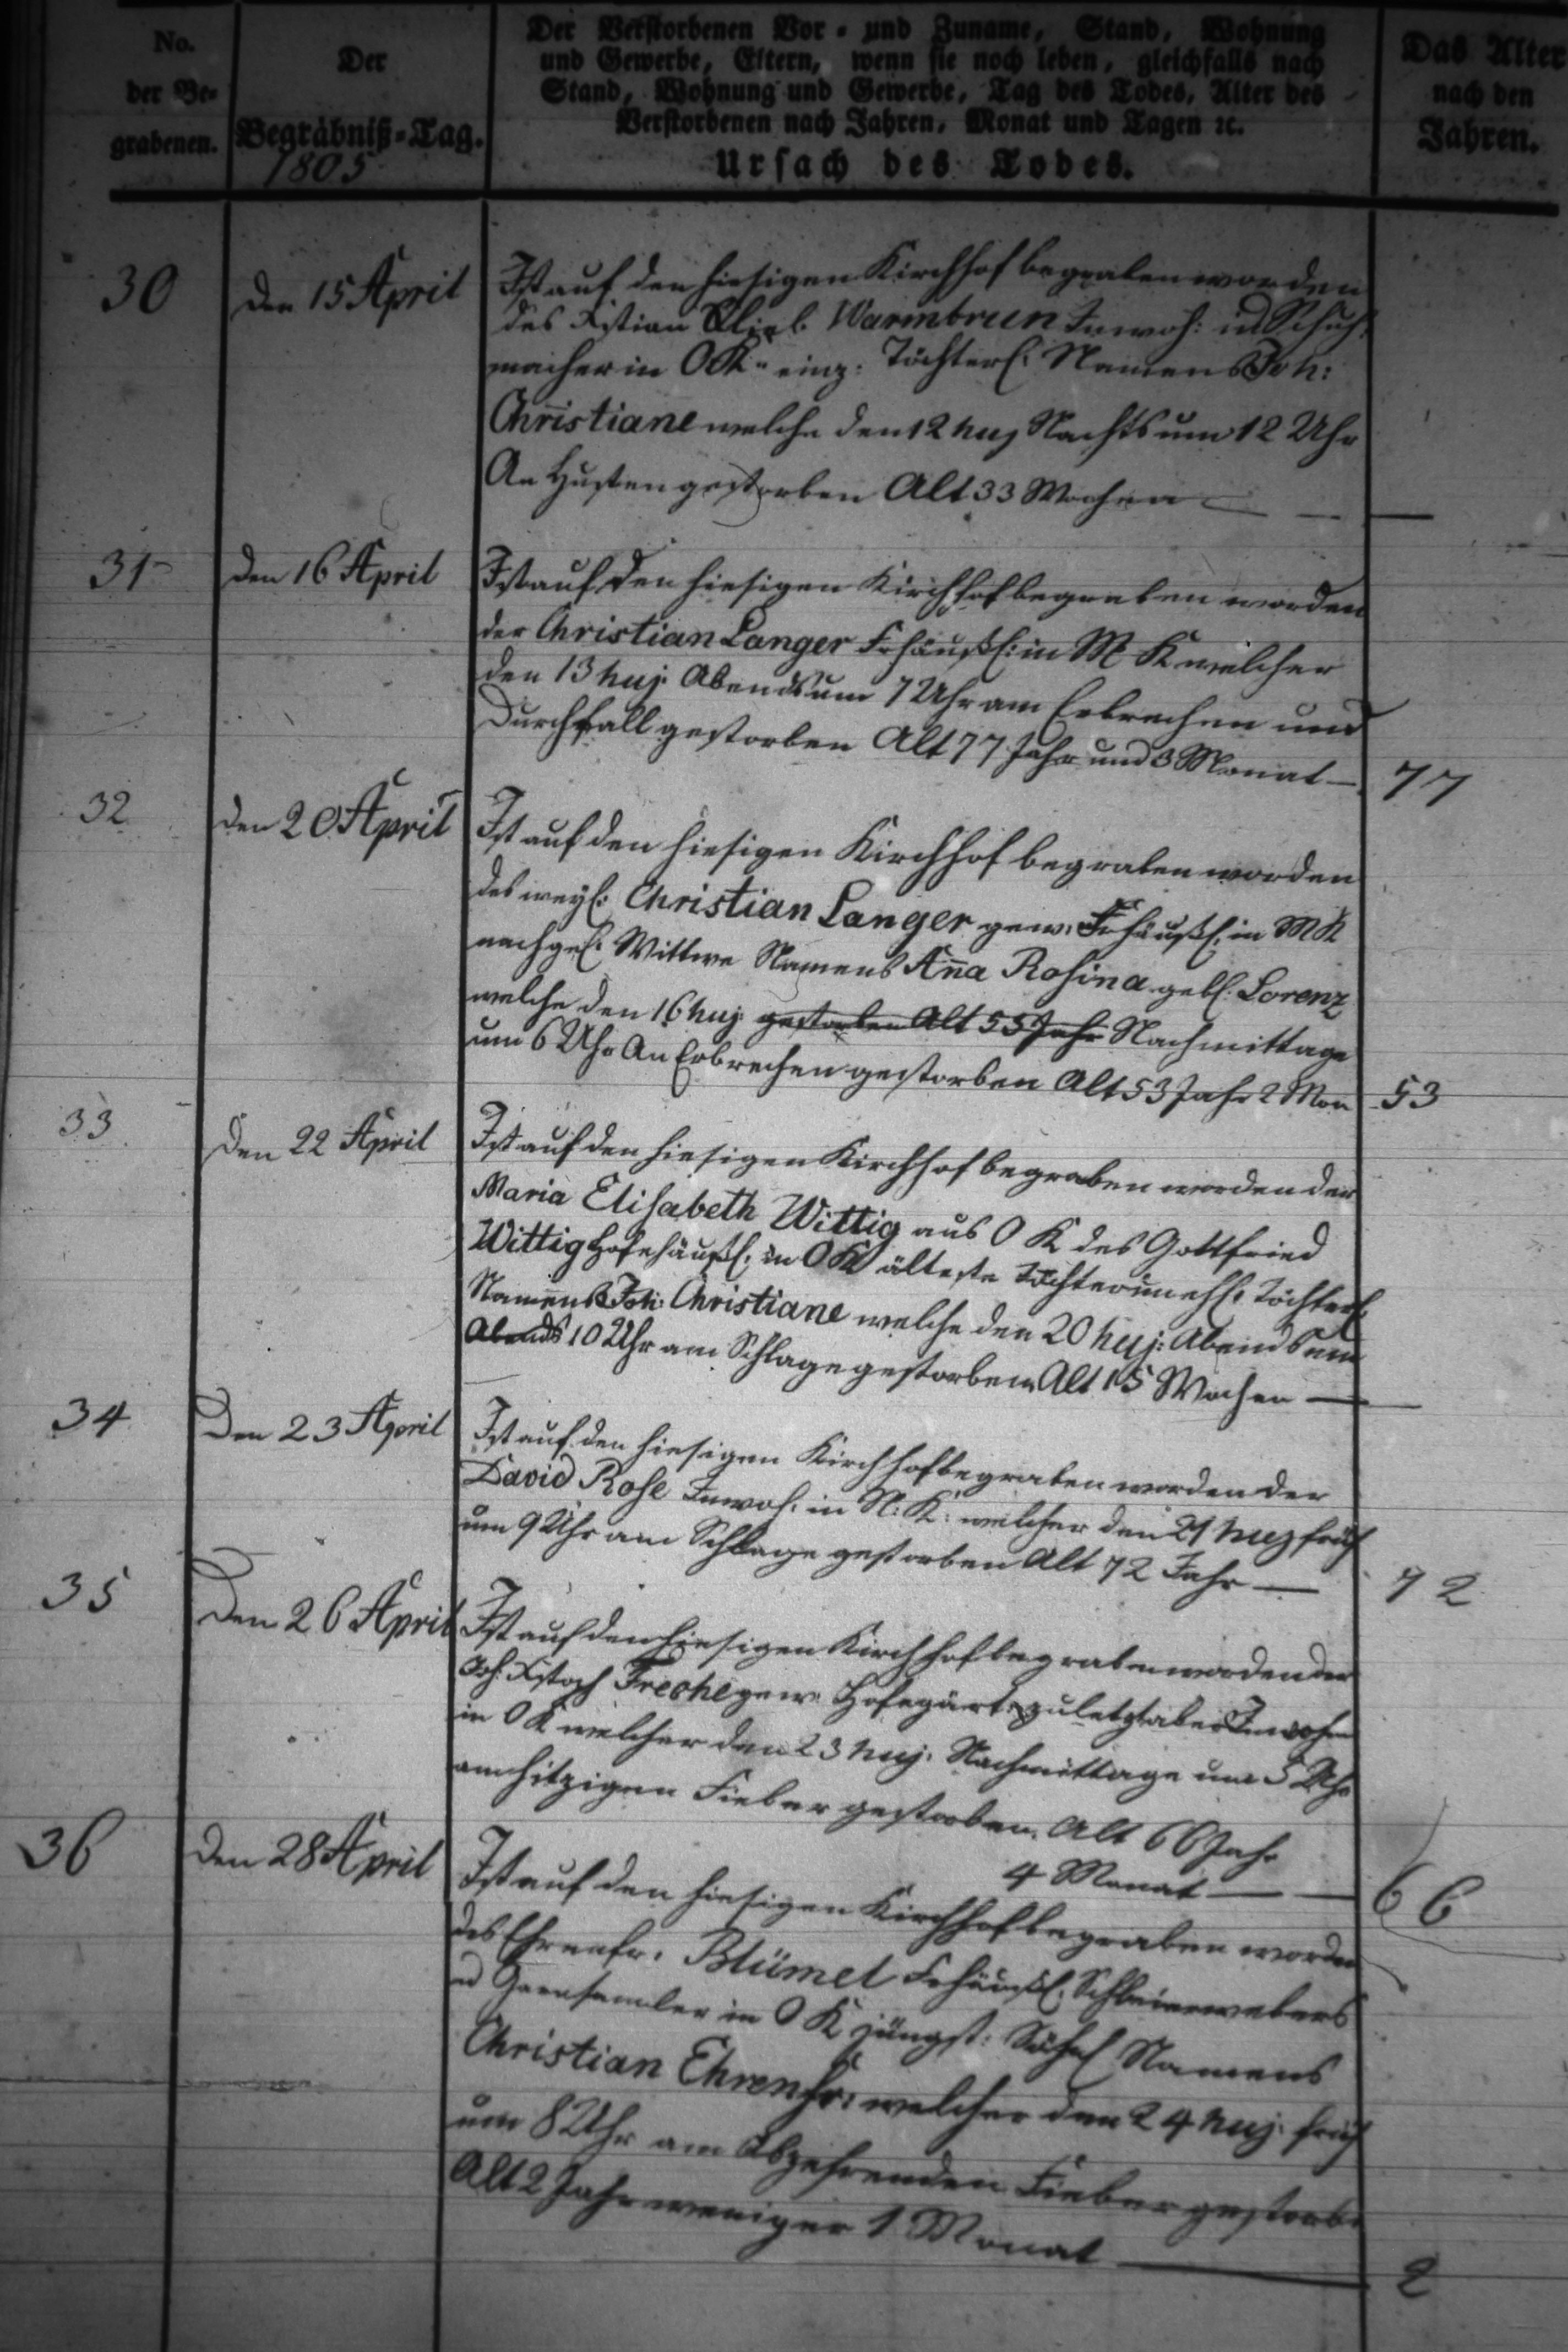 No.
der Be-
grabenen.
Der
Begräbniß-Tag.
1805
Der Verstorbenen Vor- und Zuname, Stand, Wohnung
und Gewerbe, Eltern, wenn sie noch leben, gleichfalls nach
Stand, Wohnung und Gewerbe, Tag des Todes, Alter des
Verstorbenen nach Jahren, Monat und Tagen ꝛc.
Ursach des Todes.
Das Alter
nach den
Jahren.
30 den 15 April
Ist auf den hiesigen Kirchhof begraben worden
des Xstian Warmbrun Inwoh: u Schuh-
macher in O K einz: Töchterl: Namens Joh:
Christiane welche den 12 huj Nachts um 12 Uhr
An Husten gestorben Alt 33 Wochen — — —
31 den 16 April
Ist auf den hiesigen Kirchhof begraben worden
der Christian Langer Frhäußl: in M K welcher
den 13 huj. Abends um 7 Uhr am Erbrechen und
Durchfall gestorben Alt 77 Jahr und 3 Monat — 77
32 den 20 April
Ist auf den hiesigen Kirchhof begraben worden
des weyl: Christian Langer gew: Frhäußl: in M K
nachgel: Wittwe Namens Aña Rosina gebl: Lorenz
welche den 16 huj: gestorben Alt 55 Jahr Nachmittage
um 6 Uhr An Erbrechen gestorben Alt 53 Jahr 2 Mon 53
33 den 22 April
Ist auf den hiesigen Kirchhof begraben worden der
Maria Elisabeth Wittig aus O K des Gottfried
Wittig Hofehäußl: in O K älteste Tochter unehl: Töchterl:
Namens Joh: Christiane welche den 20 huj: Abends um
Abends 10 Uhr am Schlage gestorben Alt 15 Wochen —
34 Den 23 April
Ist auf den hiesigen Kirchhof begraben worden der
David Rose Inwoh: in N: K: welcher den 21 huj früh
um 9 Uhr am Schlage gestorben Alt 72 Jahr — 72
35 Den 26 April
Ist auf den hiesigen Kirchhof begraben worden der
Joh: Xstoph Freche gew: Hofegärt: zuletzt aber Inwohn
in O K welcher den 23 huj: Nachmittage um 5 Uhr
am hitzigen Fieber gestorben. Alt 66 Jahr
4 Monat — — 66
36 den 28 April
Ist auf den hiesigen Kirchhof begraben worden
des Ehrenfr: Blümel Frhäußl: Schleierwebers
u Garnsamler in O K jüngst: Söhnl Namens
Christian Ehrenfr: welcher den 24 huj: früh
um 8 Uhr am Abzehrenden Fieber gestorbe
Alt 2 Jahr weniger 1 Monat — 2